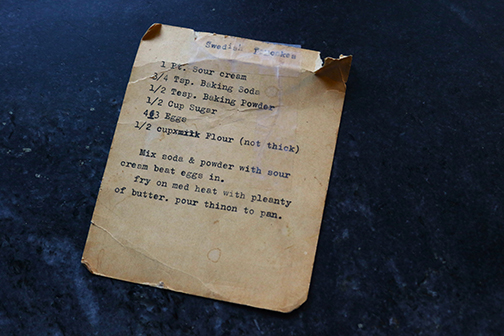 Swedish Pancakes
1 Pt. Sour cream
3/4 Tsp. Baking Soda
1/2 Tesp. Baking Powder
1/2 Cup Sugar
3 Eggs
1/2 cup Flour (not thick)
Mix soda & powder with sour
cream beat eggs in.
fry on med heat with pleanty
of butter. pour thinon to pan.